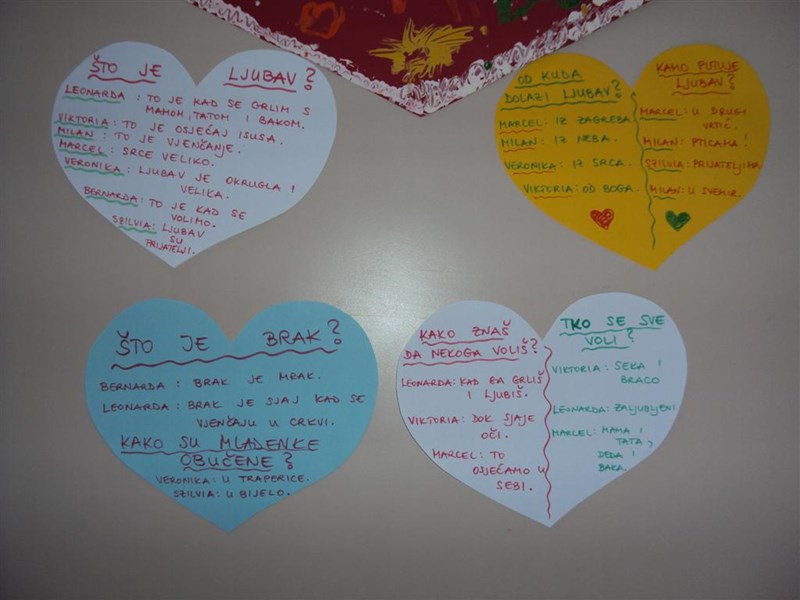 ŠTO JE LJUBAV?
LEONARDA : TO JE KAD SE GRLIM S
MAMOM, TATOM I BAKOM.
VIKTORIA: TO JE OSJEĆAJ ISUSA.
MILAN : TO JE VJENČANJE.
MARCEL : SRCE VELIKO.
VERONIKA : LJUBAV JE OKRUGLA I
VELIKA.
BERNARDA: TO JE KAD SE
VOLIMO.
SZILVIA: LJUBAV
SU
PRIJATELJI.
OD KUDA
DOLAZI LJUBAV?
MARCEL: IZ ZAGREBA.
MILAN: IZ NEBA.
VERONIKA: IZ SRCA.
VIKTORIA: OD BOGA.
KAMO PUTUJE
LJUBAV?
MARCEL: U DRUGI
VRTIĆ.
MILAN: PTICAMA!
SZILVIA: PRIJATELJIMA
MILAN: U SVEMIR.
ŠTO JE BRAK?
BERNARDA : BRAK JE MRAK.
LEONARDA : BRAK JE SJAJ KAD SE
VJENČAJU U CRKVI.
KAKO SU MLADENKE
OBUČENE?
VERONIKA: U TRAPERICE.
SZILVIA: U BIJELO.
KAKO ZNAŠ
DA NEKOGA VOLIŠ?
LEONARDA: KAD GA GRLIŠ
I LJUBIŠ.
VIKTORIA: DOK SJAJE
OČI.
MARCEL: TO
OSJEĆAMO U
SEBI.
TKO SE SVE
VOLI?
VIKTORIA: SEKA I
BRACO
LEONARDA: ZALJUBLJENI
MARCEL: MAMA I
TATA,
DEDA I
BAKA